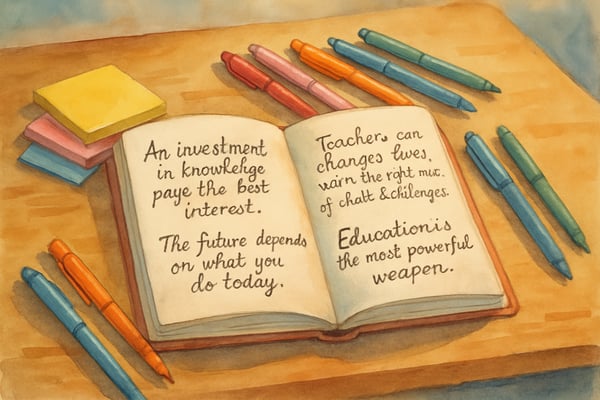 An investment
in knowlehge
paye the best
interest.
The future depends
on what you
do today.
Tcachers can
changes lives,
warn the right mix.
of chalt & chilenges.
Education is
the most powerful
weapen.